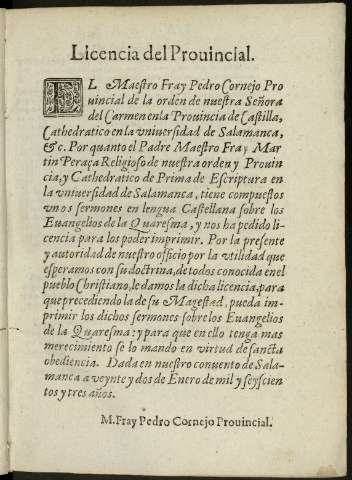 Licencia del Prouincial.
EL Maestro Fray Pedro Cornejo Pro
uincial de la orden de nuestra Señora
del Carmen en la Prouincia de Castilla,
Cathedratico en la vniuersidad de Salamanca,
&c. Por quanto el Padre Maestro Fray Mar
tin Peraça Religioso de nuestra orden y Prouin
cia, y Cathedratico de Prima de Escriptura en
la vniuersidad de Salamanca, tiene compuestos
vnos sermones en lengua Castellana sobre los
Euangelios de la Quaresma, y nos ha pedido li-
cencia para los poder imprimir. Por la presente
y autoridad de nuestro officio por la vtilidad que
esperamos con su doctrina, de todos conocida en el
pueblo Christiano, le damos la dicha licencia, para
que precediendo la de su Magestad, pueda im-
primir los dichos sermones sobre los Euangelios
de la Quaresma: y para que en ello tenga mas
merecimiento se lo mando en virtud de sancta
obediencia. Dada en nuestro conuento de Sala-
manca a veynte y dos de Enero de mil y seyscien
tos y tres años.
M. Fray Pedro Cornejo Prouincial.